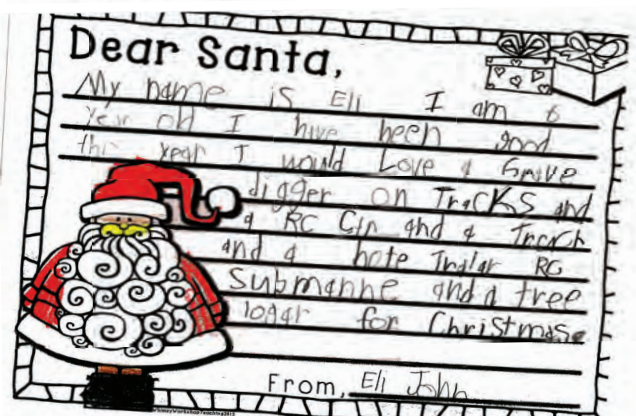 Dear Santa,
My name is Eli I am 6
Year old I have been good
this year I would Love a Grave
digger on TracKS and
a RC Car and a Truck
and a bote Tralar RC
Submarine and a tree
logar for Christmase
From, Eli John